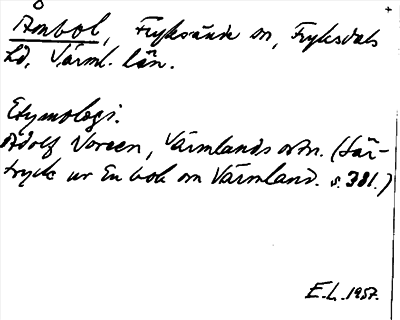 Åmbol, Fryksände sn, Fryksdals
hd, Värml. län.
Etymologi.
Adolf Noreen, Värmlands ortn. (Sär-
tryck ur En bok om Värmland. s. 381.)
E.L. 1957.